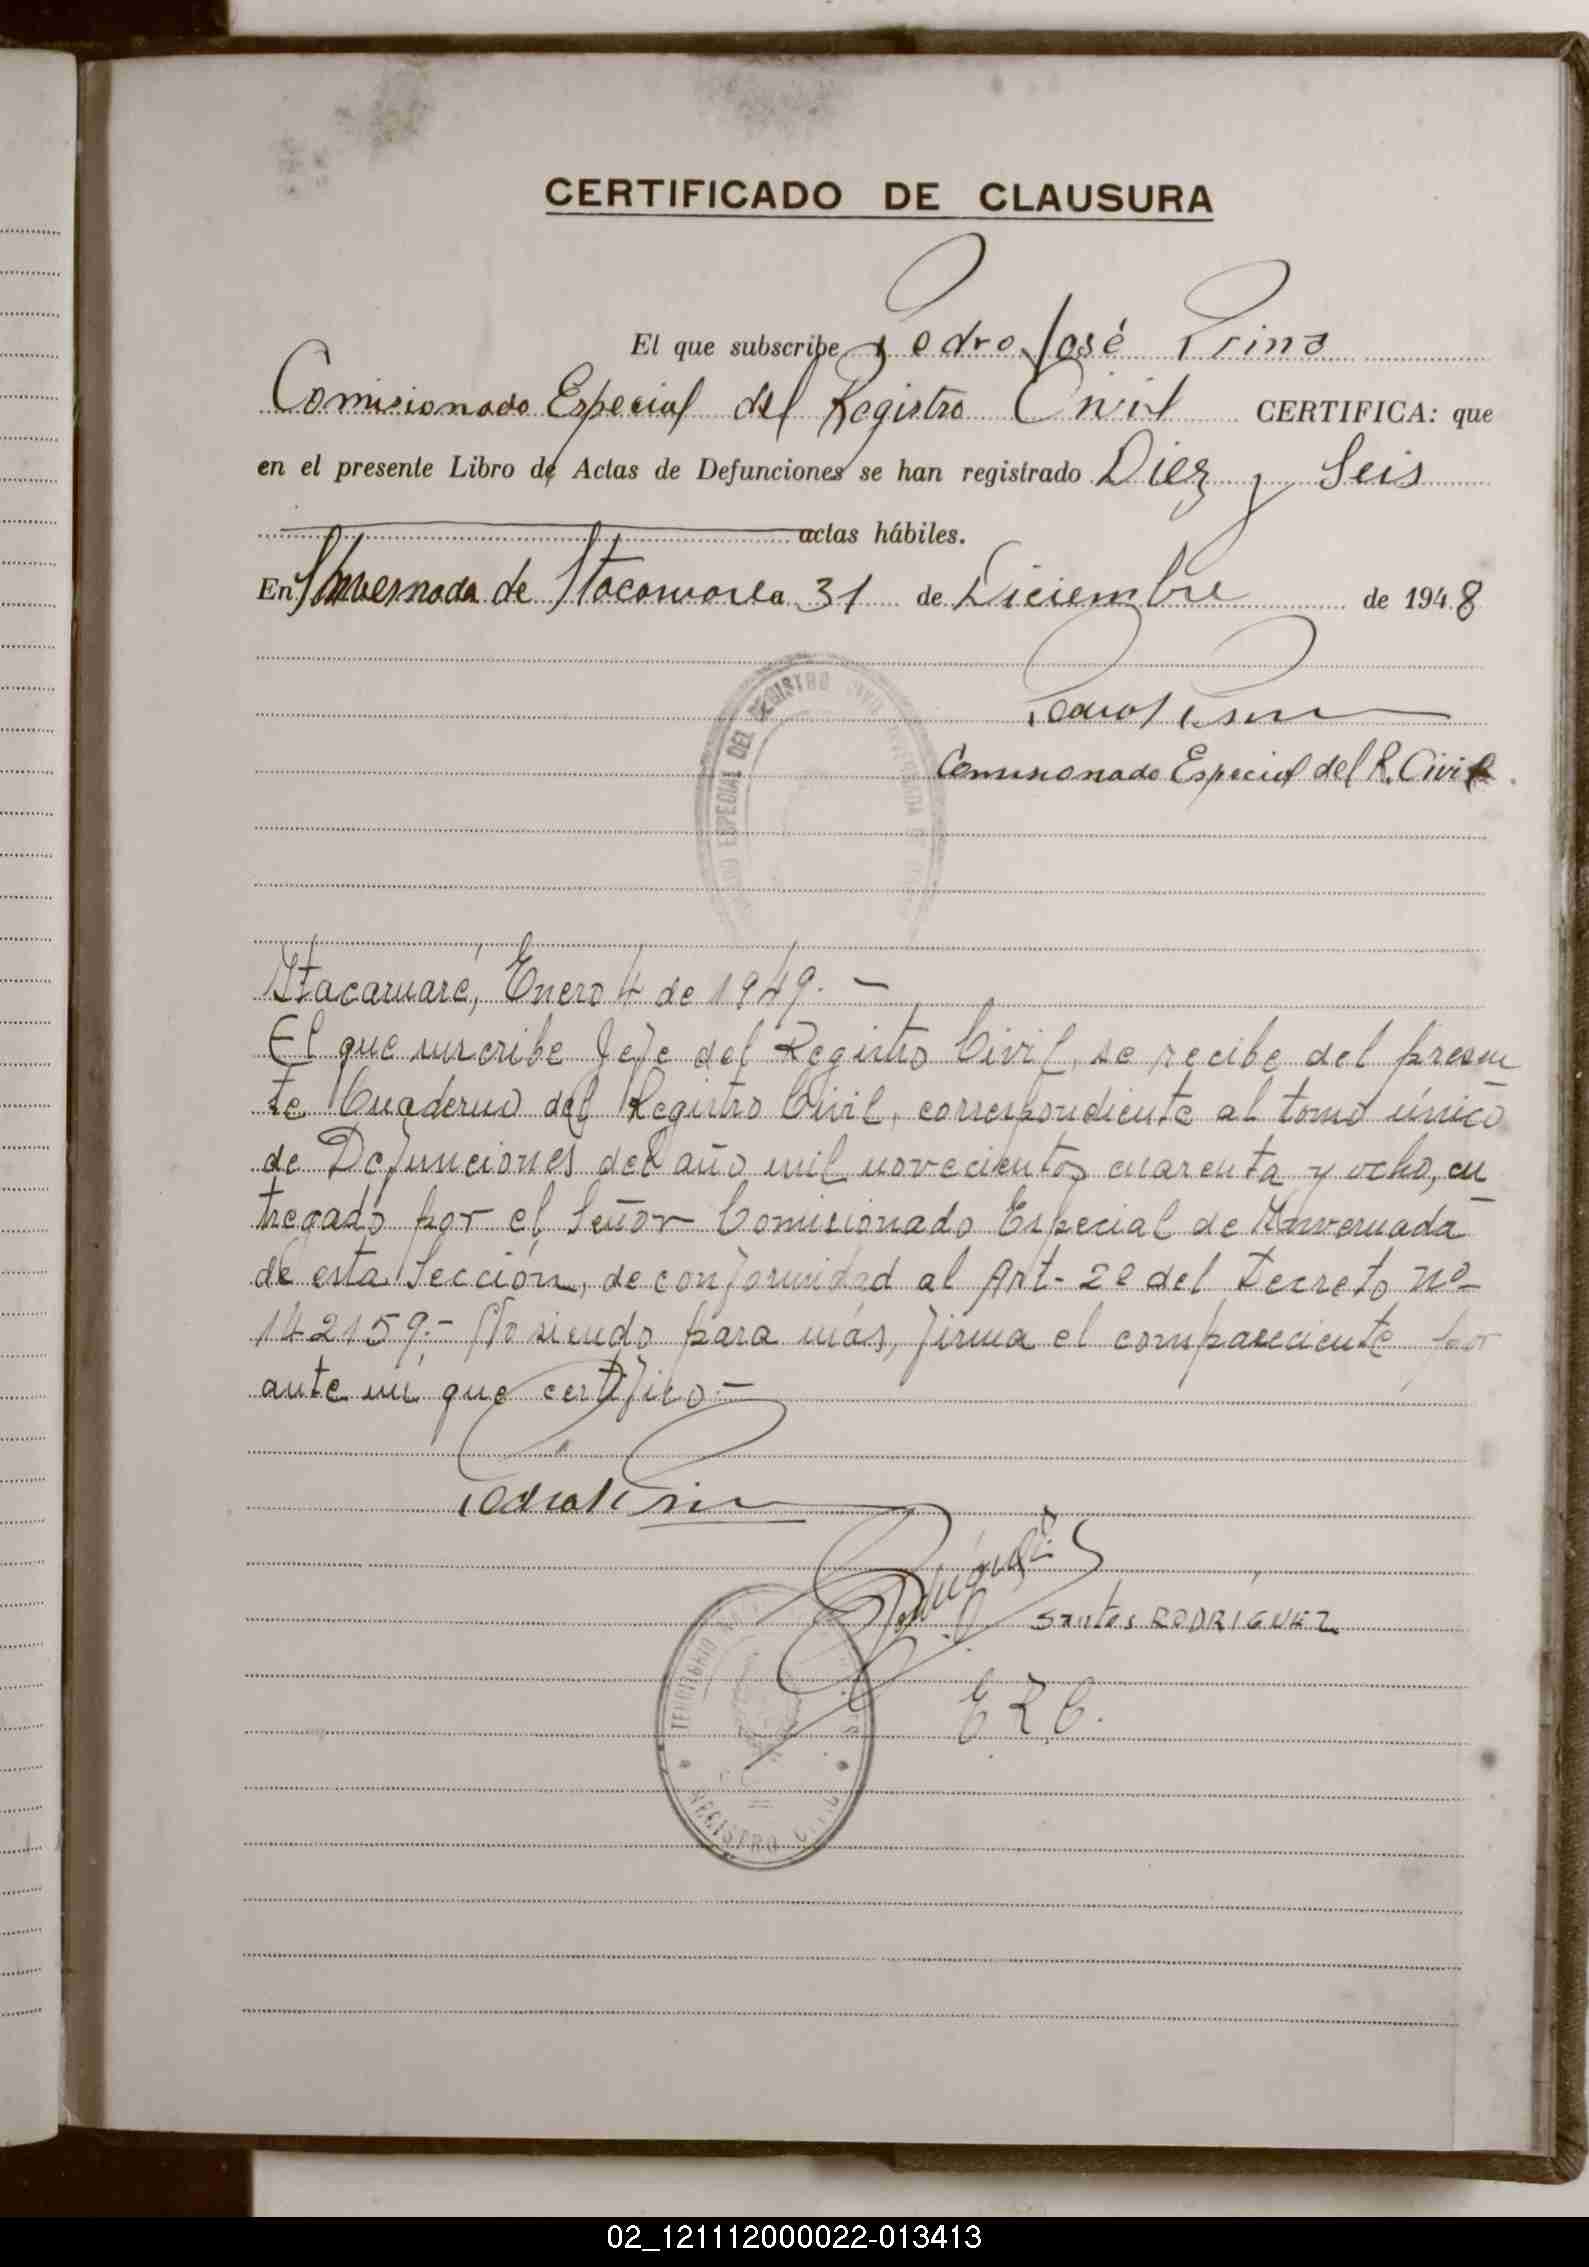 CERTIFICADO DE CLAUSURA
El que subscribe Pedro José Prino
Comisionado Especial del Registro Civil CERTIFICA: que
en el presente Libro de Actas de Defunciones se han registrado Diez y Seis
actas hábiles.
En Invernada de Itacaruaré a 31 de Diciembre de 1948
ESPECIAL DEL REGISTRO CIVIL
Comisionado Especial del R. Civil.
Itacaruaré, Enero 4 de 1949.-
El que suscribe Jefe del Registro Civil, se recibe del presen
te Cuaderno del Registro Civil, correspondiente al tomo único
de Defunciones del año mil novecientos cuarenta y ocho, en
tregado por el Señor Comisionado Especial de Invernada
de esta Sección, de conformidad al Art- 2º del Decreto Nº
142159.- No siendo para más, firma el compareciente por
ante mi que certifico.-
SANtos RODRIGUEZ
E R C.
REGISTRO CIVIL
02_121112000022-013413